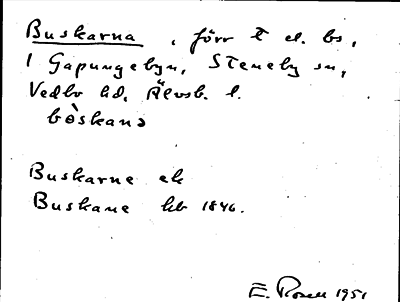 Buskarna, förr t el. bs,
i Gapungebyn, Steneby sn,
Vedbo hd, Älvsb. l.
bòskanɔ
Buskarne ek
Buskane hb 1846.
E. Rosell 1951